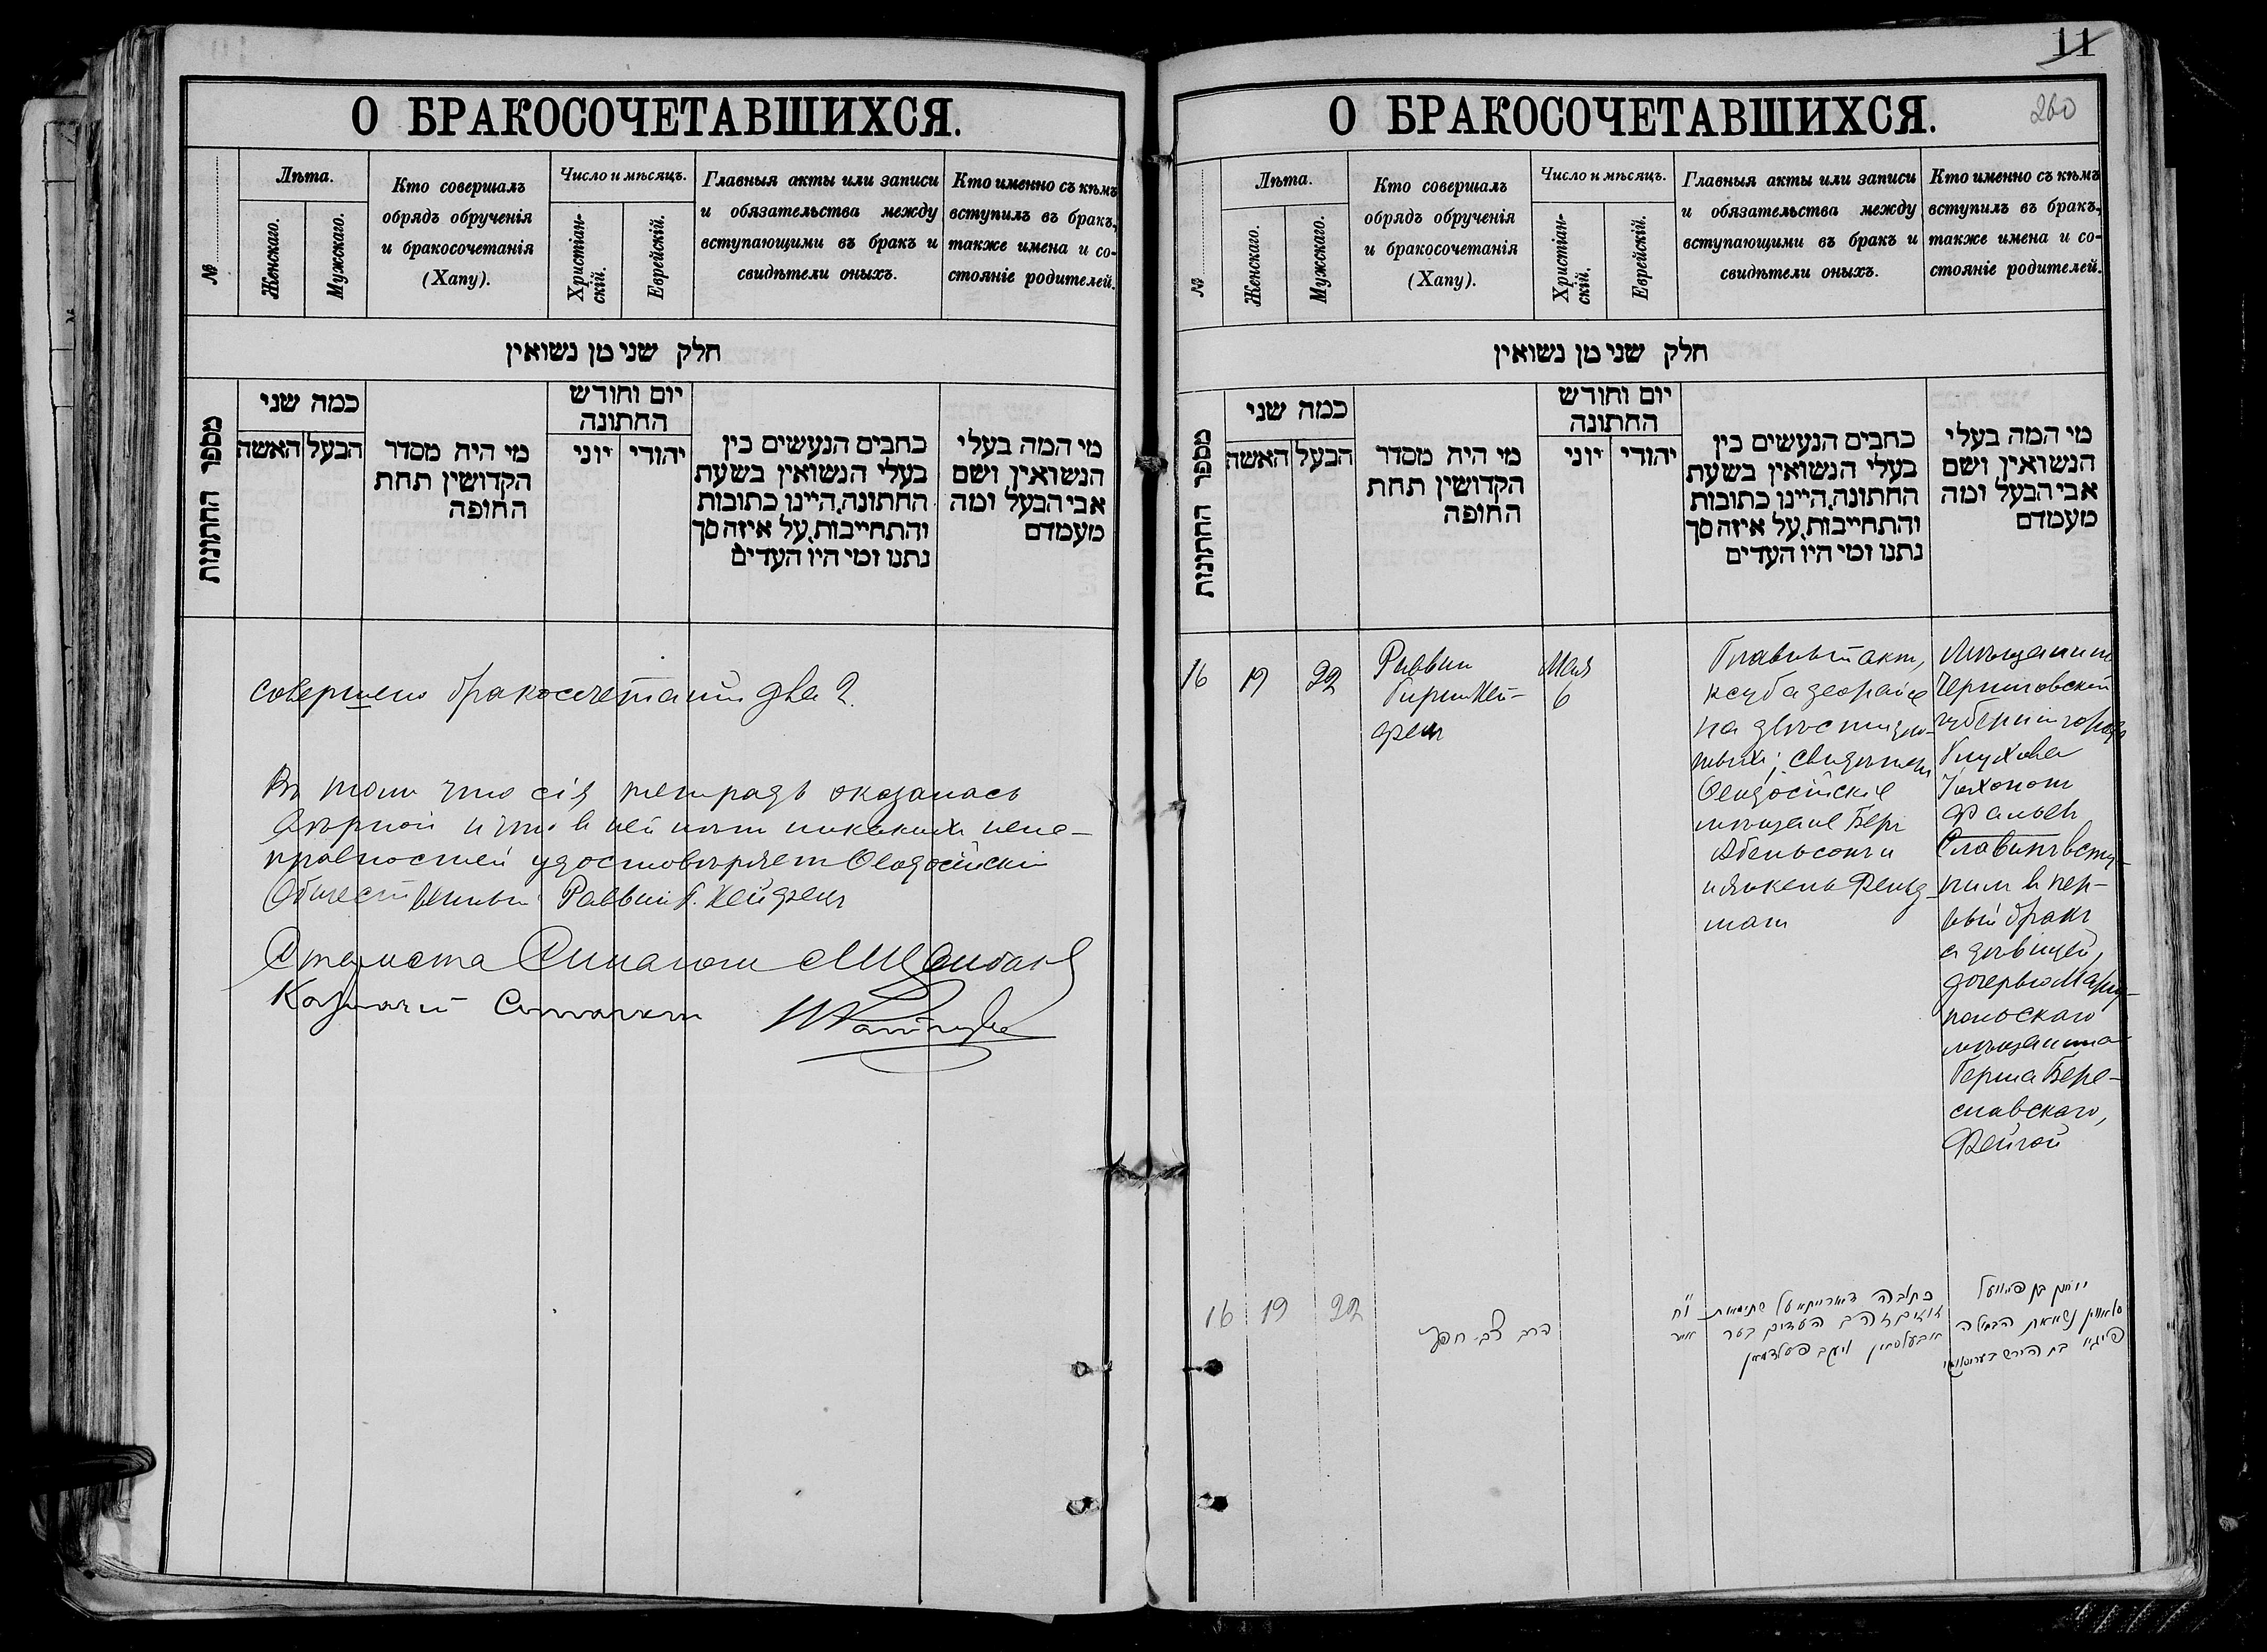 О БРАКОСОЧЕТАВШИХСЯ.
№
Лѣта.
Женскаго.
Мужскаго.
Кто совершалъ
обрядъ обрученія
и бракосочетанія
(Хапу).
Число и мѣсяцъ.
Христіан-
скій.
Еврейскій.
Главныя акты или записи
и обязательства между
вступающими въ бракъ и
свидѣтели оныхъ.
Кто именно съ кѣмъ
вступилъ въ бракъ,
также имена и со-
стояніе родителей.
חלק שני מן נשואין
מספר החתונות
כמה שני
האשה
הבעל
מי היה מסדר
הקדושין תחת
החופה
יום וחודש
החתונה
יוני
יהודי
כתבים הנעשים בין
בעלי הנשואין בשעת
החתונה, היינו כתובות
והתחייבות, על איזה סך
נתנו ומי היו העדים
מי המה בעלי
הנשואין ושם
אבי הבעל ומה
מעמדם
совершено бракосочетаній два 2.
Въ томъ что сія тетрадь оказалась
вѣрной и что в ней нѣтъ никакихъ неис-
правностей удостовѣряетъ Ѳеодосійскій
Общественный Раввинъ Г. Нейфельд
Староста Синагоги
Казначей Синагоги
11
260
О БРАКОСОЧЕТАВШИХСЯ.
№
Лѣта.
Женскаго.
Мужскаго.
Кто совершалъ
обрядъ обрученія
и бракосочетанія
(Хапу).
Число и мѣсяцъ.
Христіан-
скій.
Еврейскій.
Главныя акты или записи
и обязательства между
вступающими въ бракъ и
свидѣтели оныхъ.
Кто именно съ кѣмъ
вступилъ въ бракъ,
также имена и со-
стояніе родителей.
חלק שני מן נשואין
מספר החתונות
כמה שני
האשה
הבעל
מי היה מסדר
הקדושין תחת
החופה
יום וחודש
החתונה
יוני
יהודי
כתבים הנעשים בין
בעלי הנשואין בשעת
החתונה, היינו כתובות
והתחייבות, על איזה סך
נתנו ומי היו העדים
מי המה בעלי
הנשואין ושם
אבי הבעל ומה
מעמדם
16
19
22
Раввин
Гирш
Мая
6
Главный акт,
ксуба деорайсе
на двѣсти зло-
тых; свидѣтели
Ѳеодосійские
мѣщане Бер
Абельсон и
Янкель Фельд-
ман
Мѣщанинъ
Черниговской
губерніи города
Глухова
Фальев
Славин всту-
пил в пер-
вый брак
с дѣвицей,
дочерью Мариу-
польскаго
мѣщанина
Герша Бере-
славскаго,
Фейгой
16
19
22
הרב צבי
ח"י
אייר
כתובה דאורייתא על שתי מאות
זהב העדים בער
אבעלסאן ויעקב פעלדמאן
סלאווין נשא את הבתולה
פייגא בת הירש